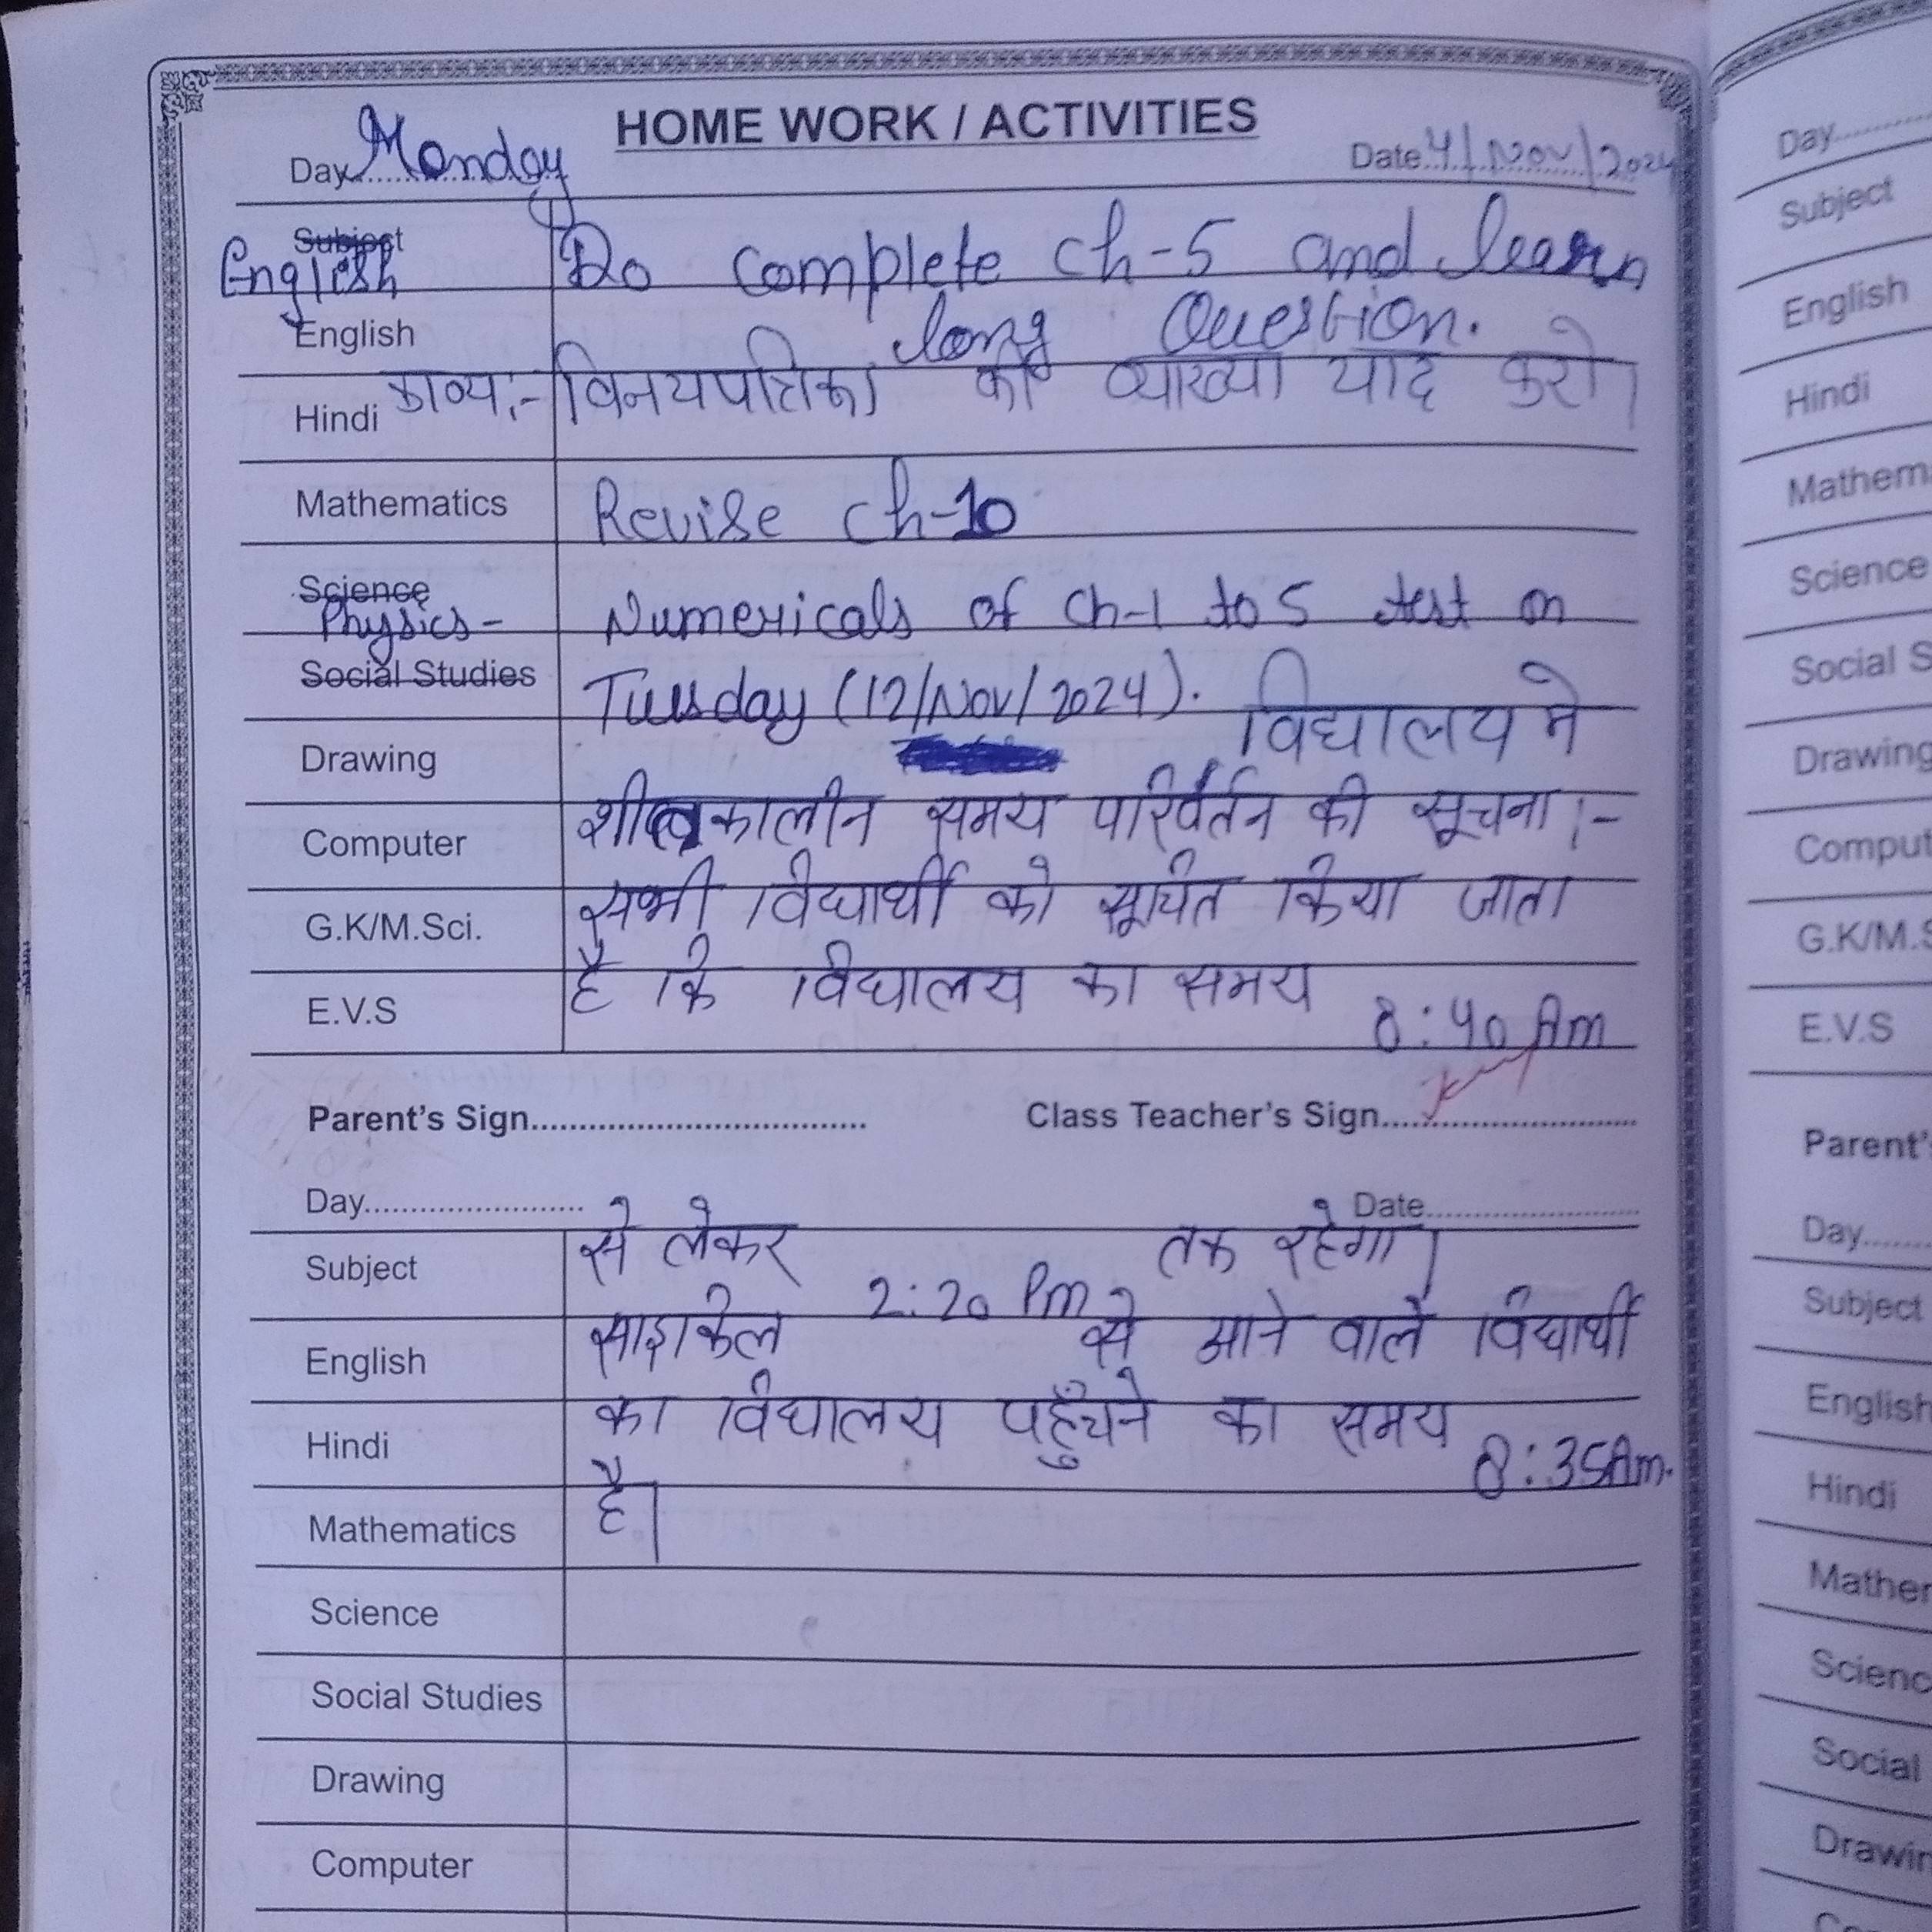 HOME WORK / ACTIVITIES
Day Monday
Date 4/Nov/2024
Subject
English Do complete ch-5 and learn
English long Question.
Hindi काव्य:- विनयपत्रिका की व्याख्या याद करो।
Mathematics Revise ch-10
Science
Physics- Numericals of ch-1 to 5 test on
Social Studies Tuesday (12/Nov/2024).
Drawing विद्यालय मे
Computer शीतकालीन समय परिवर्तन की सूचना:-
G.K/M.Sci. सभी विद्यार्थी को सूचित किया जाता
E.V.S है कि विद्यालय का समय 8:40 Am
Parent's Sign Class Teacher's Sign
Day Date
Subject से लेकर 2:20 Pm तक रहेगा।
English साइकिल से आने वाले विद्यार्थी
Hindi का विद्यालय पहुँचने का समय 8:35Am.
Mathematics है।
Science
Social Studies
Drawing
Computer
Day
Subject
English
Hindi
Mathem
Science
Social S
Drawing
Comput
G.K/M.S
E.V.S
Parent'
Day
Subject
English
Hindi
Mather
Scienc
Social
Drawin